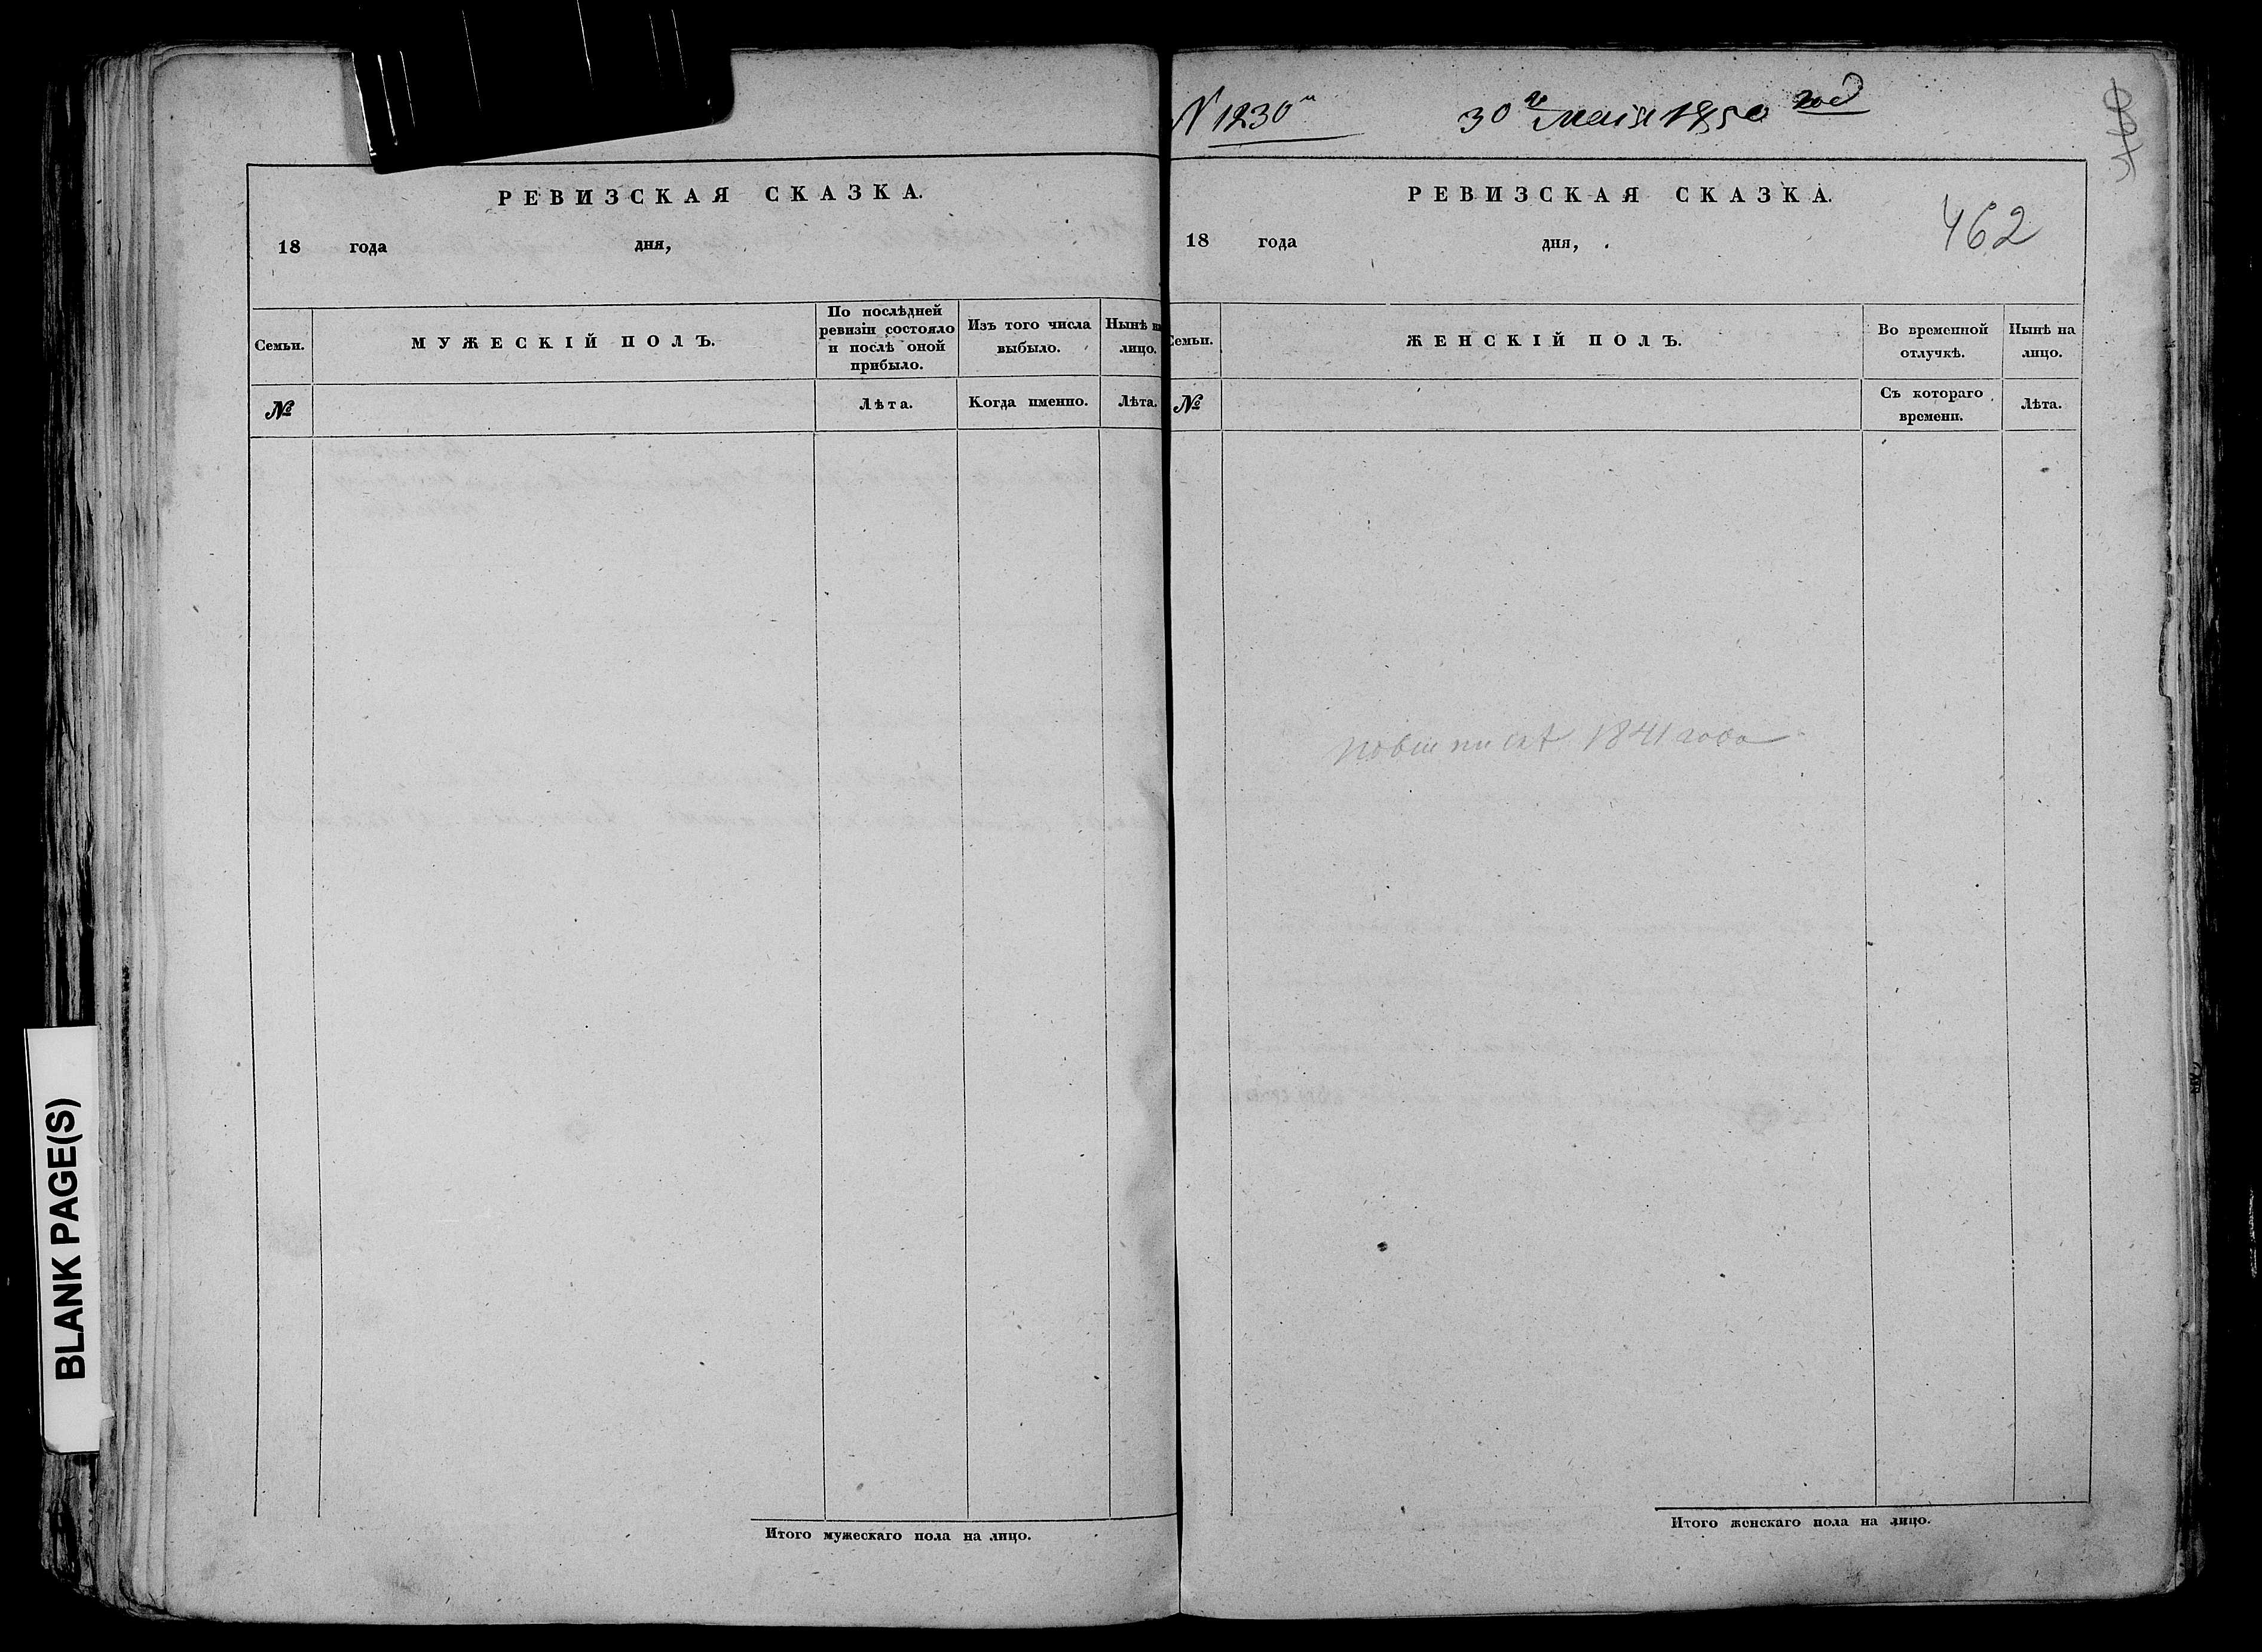 РЕВИЗСКАЯ СКАЗКА.
18 года дня,
Семьи.
МУЖЕСКІЙ ПОЛЪ.
По послѣдней
ревизіи состояло
и послѣ оной
прибыло.
Изъ того числа
выбыло.
Нынѣ на
лицо.
№
Лѣта.
Когда именно.
Лѣта.
Итого мужескаго пола на лицо.
N 1230
30го Маія 1850 год
РЕВИЗСКАЯ СКАЗКА.
462
18 года дня,
Семьи.
ЖЕНСКІЙ ПОЛЪ.
Во временной
отлучкѣ.
Нынѣ на
лицо.
№
Съ котораго
времени.
Лѣта.
1841 года
Итого женскаго пола на лицо.
BLANK PAGE(S)